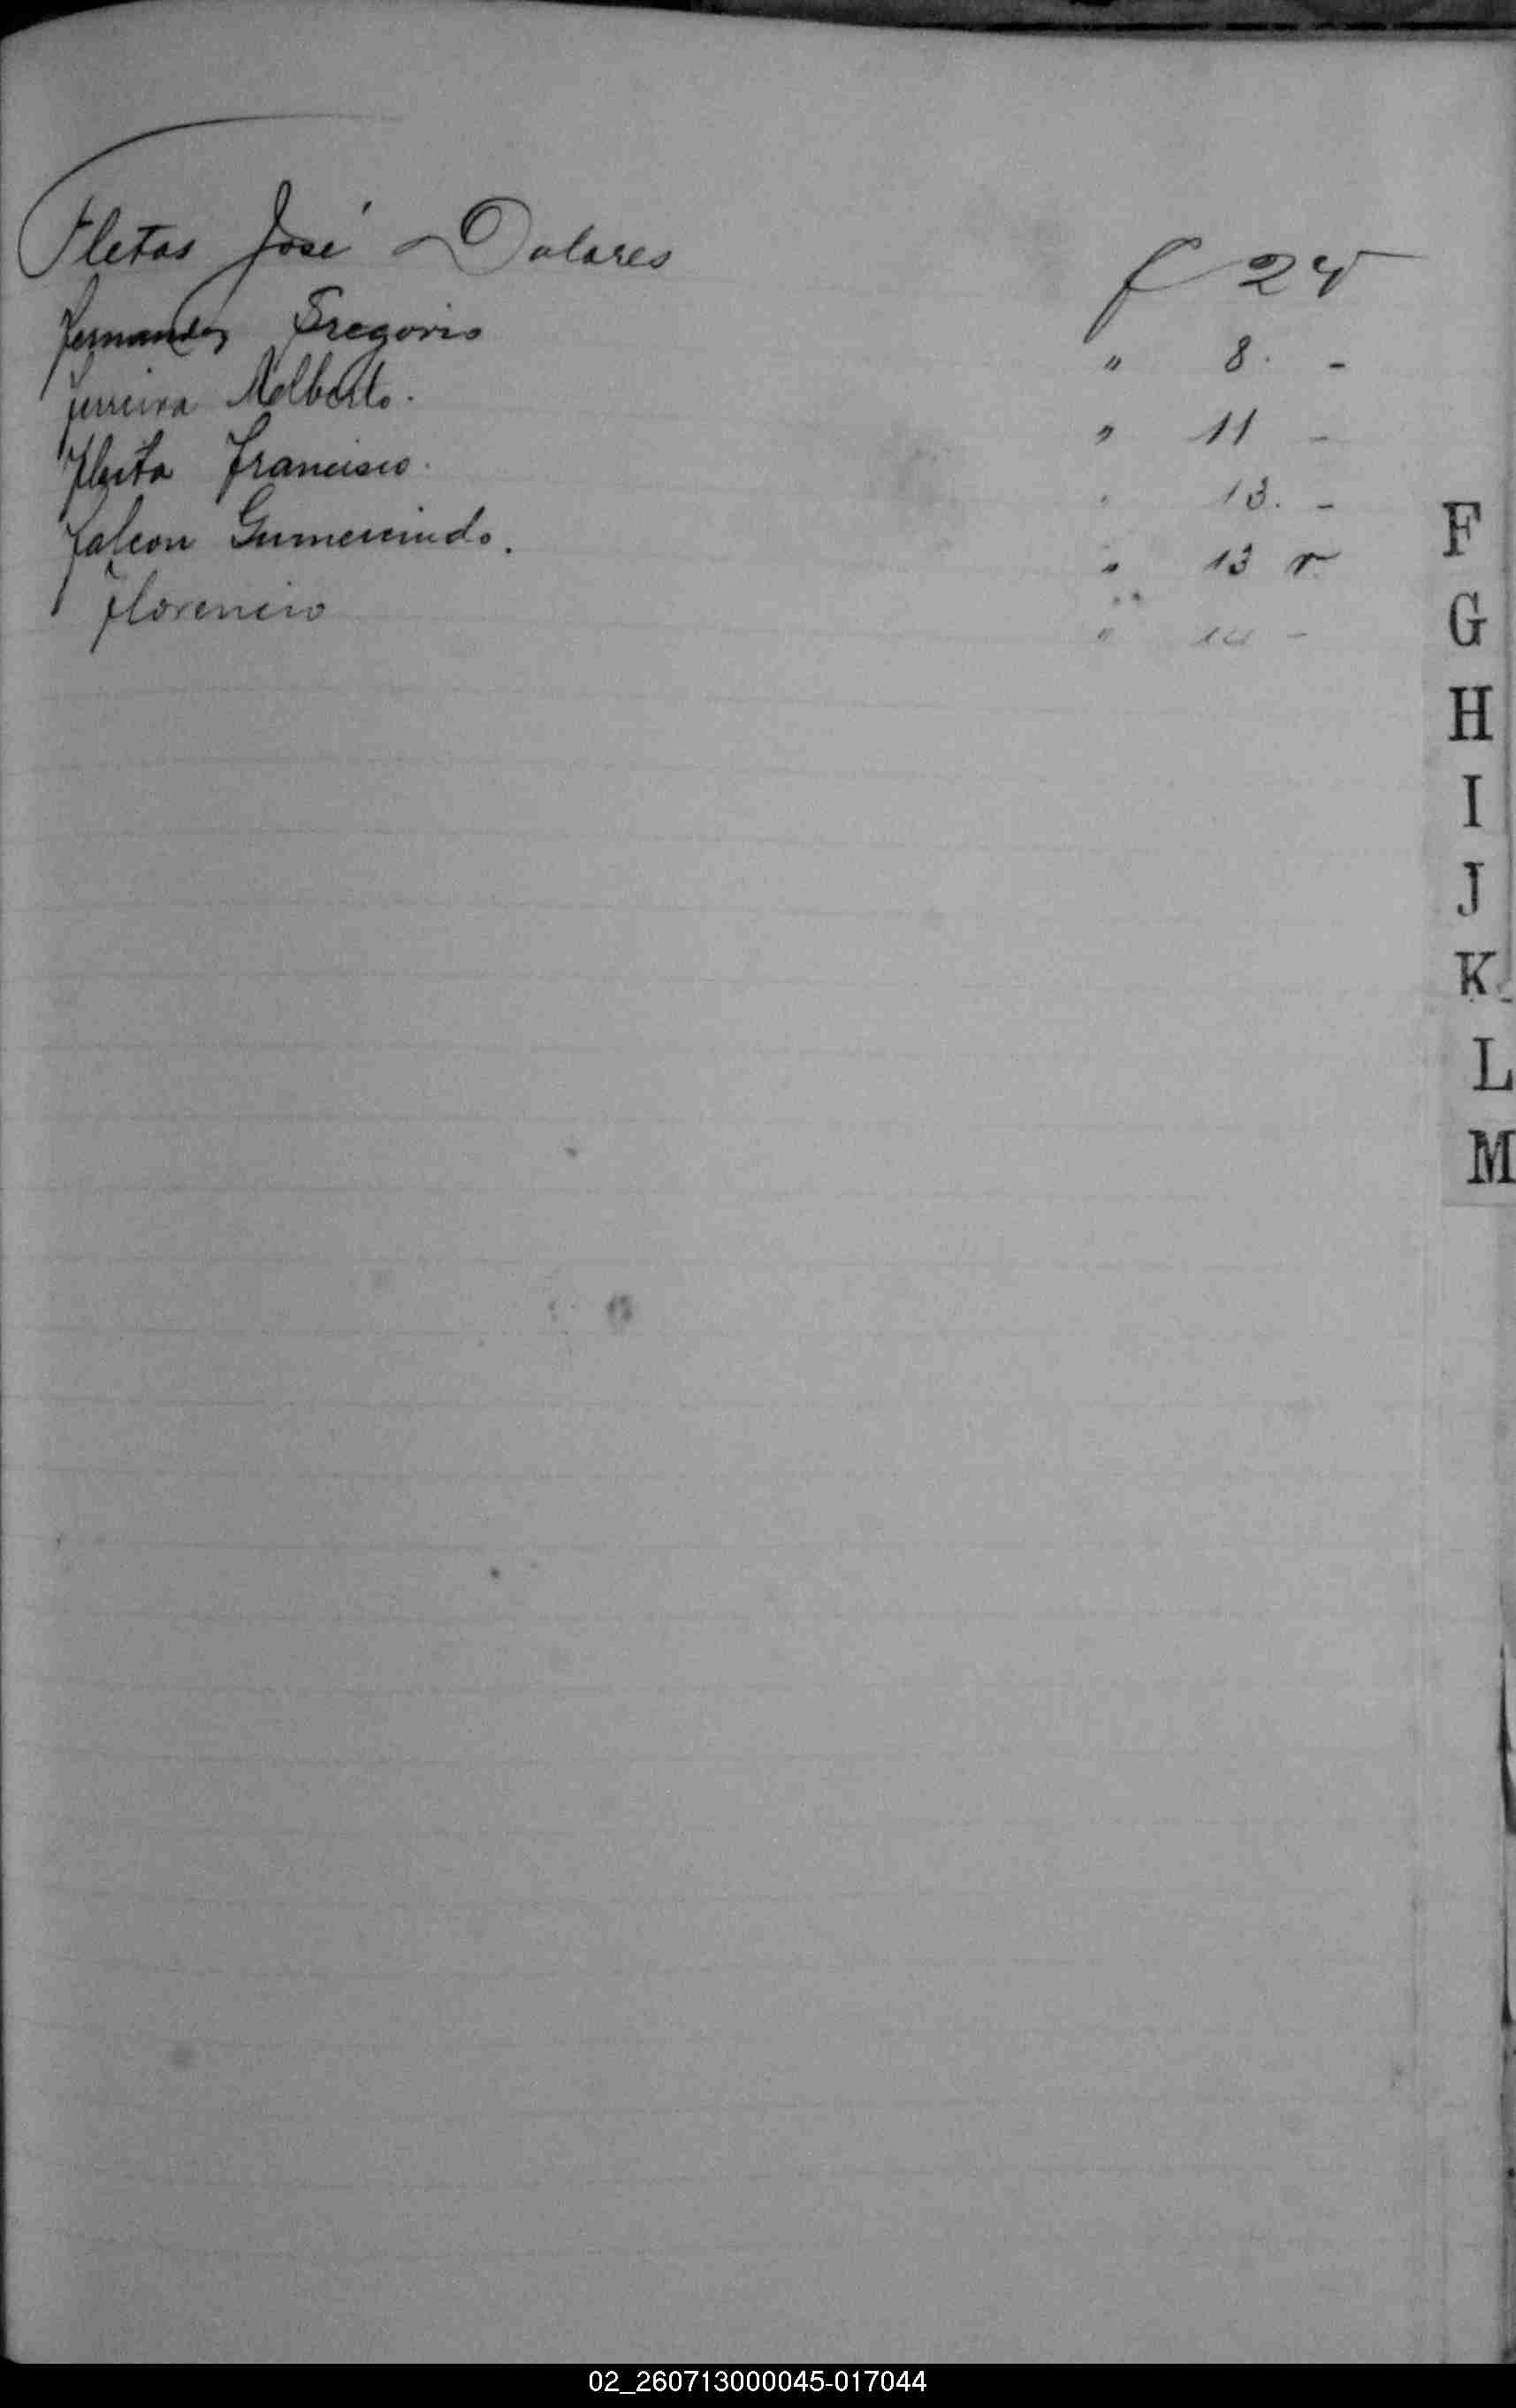 Fletas José Dolares f 2 v
Fernandez Gregorio " 8. -
Ferreira Adlberto. " 11 -
Fleita Francisco. " 13. -
Falcon Gumercindo. " 13 v
Florencio " 14 -
F
G
H
I
J
K
L
M
02_260713000045-017044